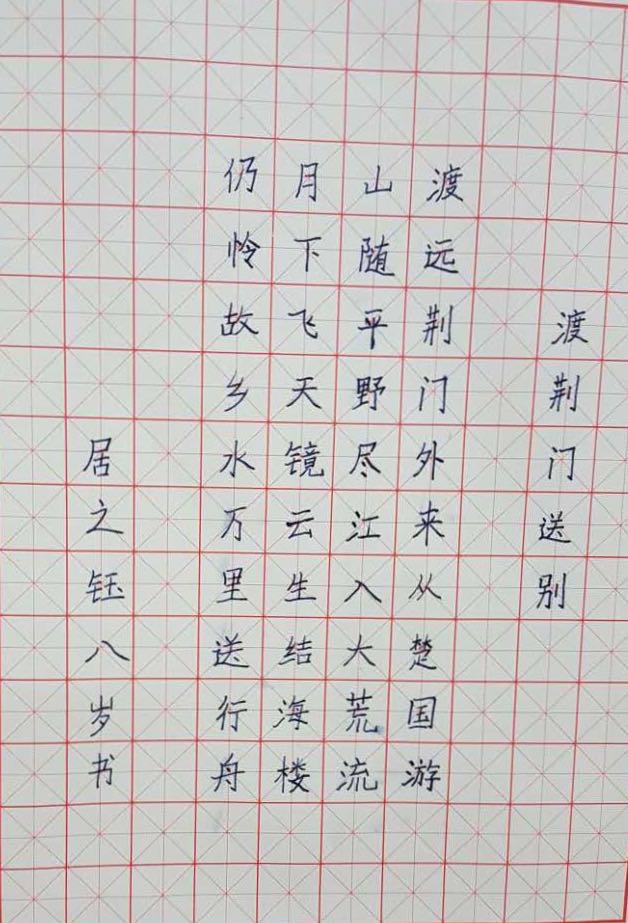 渡荆门送别
渡远荆门外来从楚国游
山随平野尽江入大荒流
月下飞天镜云生结海楼
仍怜故乡水万里送行舟
居之钰八岁书